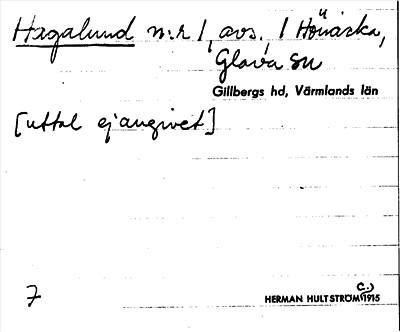 Hagalund n:r 1, avs. 1 Hönäska,
Glava sn
Gillbergs hd, Värmlands län
[uttal ej angivet]
7
HERMAN HULTSTRÖM (c.) 1915